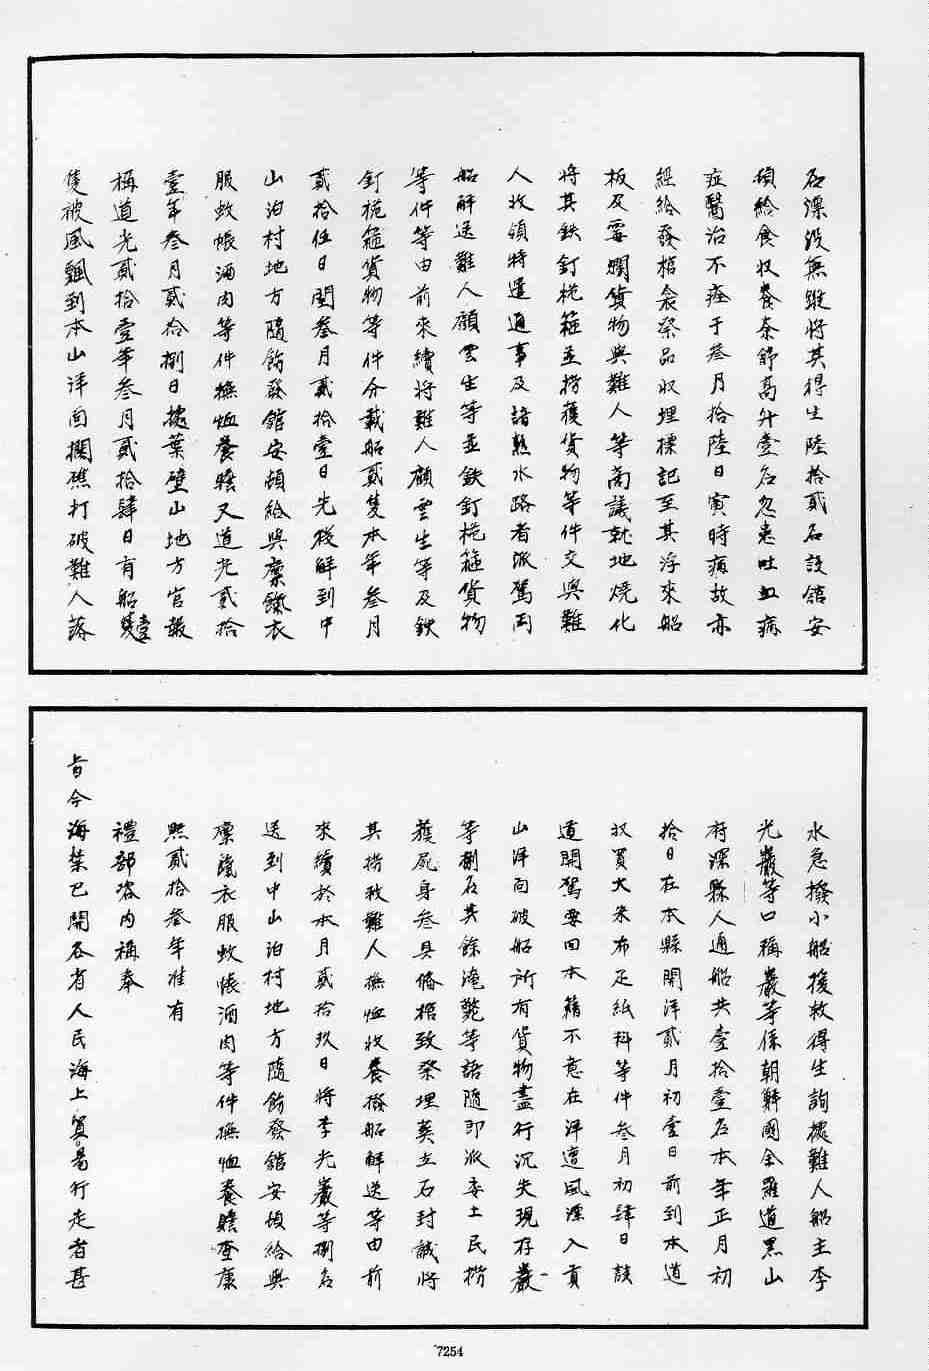 名漂沒無蹤將其得生陸拾貳名設舘安
頓給食收養奈舒高升壹名忽患吐血病
症醫治不痊于叁月拾陸日寅時病故亦
經給發棺衾祭品收埋標記至其浮來船
板及霉爛貨物與難人等商議就地燒化
將其鉄釘桅箍並撈獲貨物等件交與難
人收領特遣通事及諳熟水路者派駕両
船解送難人顧雲生等並鉄釘桅箍貨物
等件等由前來續將難人顧雲生等及鉄
釘桅箍貨物等件分載船貳隻本年叁月
貳拾伍日閏叁月貳拾壹日先後解到中
山泊村地方隨飭發舘安頓給與廩餼衣
服蚊帳酒肉等件撫恤養贍又道光貳拾
壹年叁月貳拾捌日據葉壁山地方官報
稱道光貳拾壹年叁月貳拾肆日有船壹隻
隻被風飄到本山洋面擱礁打破難人落
水急撥小船援救得生詢據難人船主李
光巖等口稱巖等係朝鮮國全羅道黑山
府深縣人通船共壹拾壹名本年正月初
拾日在本縣開洋貳月初壹日前到本道
収買大米布疋紙料等件叁月初肆日該
道開駕要回本籍不意在洋遭風漂入貴
山洋面破船所有貨物盡行沉失現存巖
等捌名其餘淹斃等語隨即派委土民撈
獲屍身叁具俻棺致祭埋葬立石封誠將
其撈救難人撫恤收養撥船解送等由前
來續於本月貳拾玖日將李光巖等捌名
送到中山泊村地方隨飭發舘安頓給與
廩餼衣服蚊帳酒肉等件撫恤養贍查康
熙貳拾叁年准有
禮部咨內稱奉
旨今海禁已開各省人民海上貿易行走者甚
7254